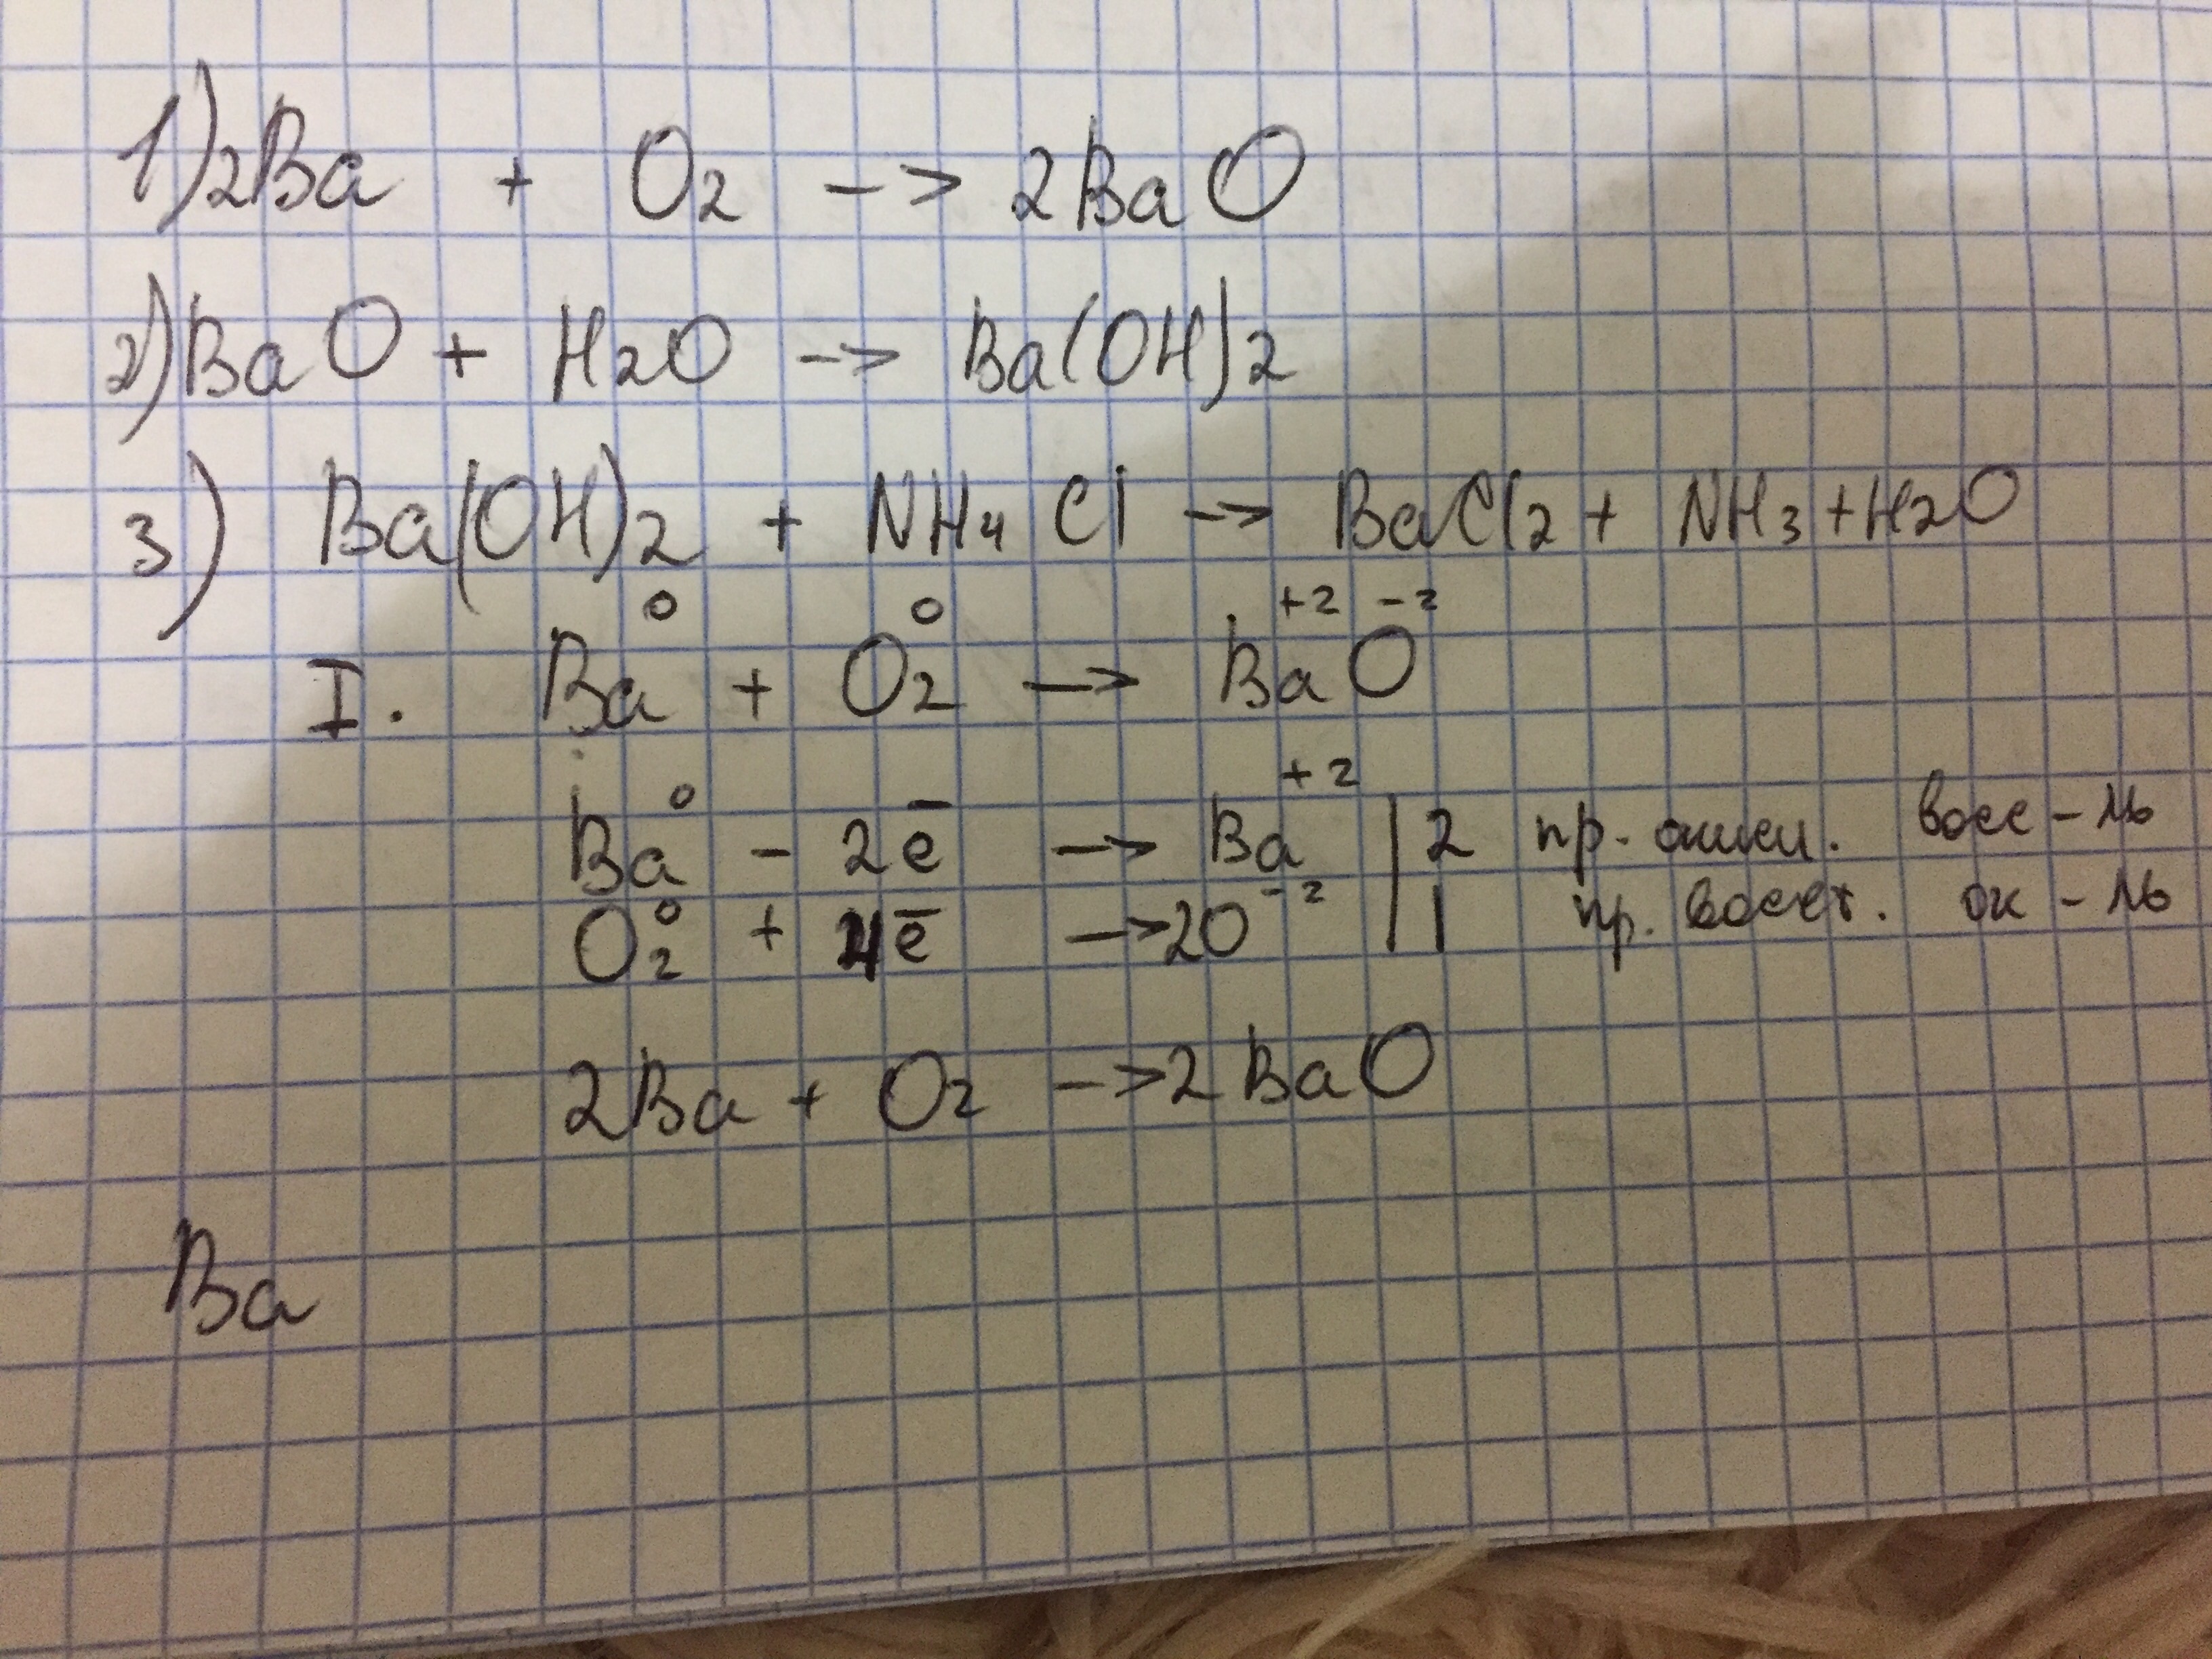 1) 2Ba + O2 -> 2BaO
2) BaO + H2O -> Ba(OH)2
3) Ba(OH)2 + NH4Cl -> BaCl2 + NH3 + H2O
I. Ba⁰ + O2⁰ -> Ba⁺²O⁻²
Ba⁰ - 2e̅ -> Ba⁺² | 2 пр. окисл. восс-ль
O2⁰ + 4e̅ -> 2O⁻² | 1 пр. восст. ок-ль
2Ba + O2 -> 2BaO
Ba